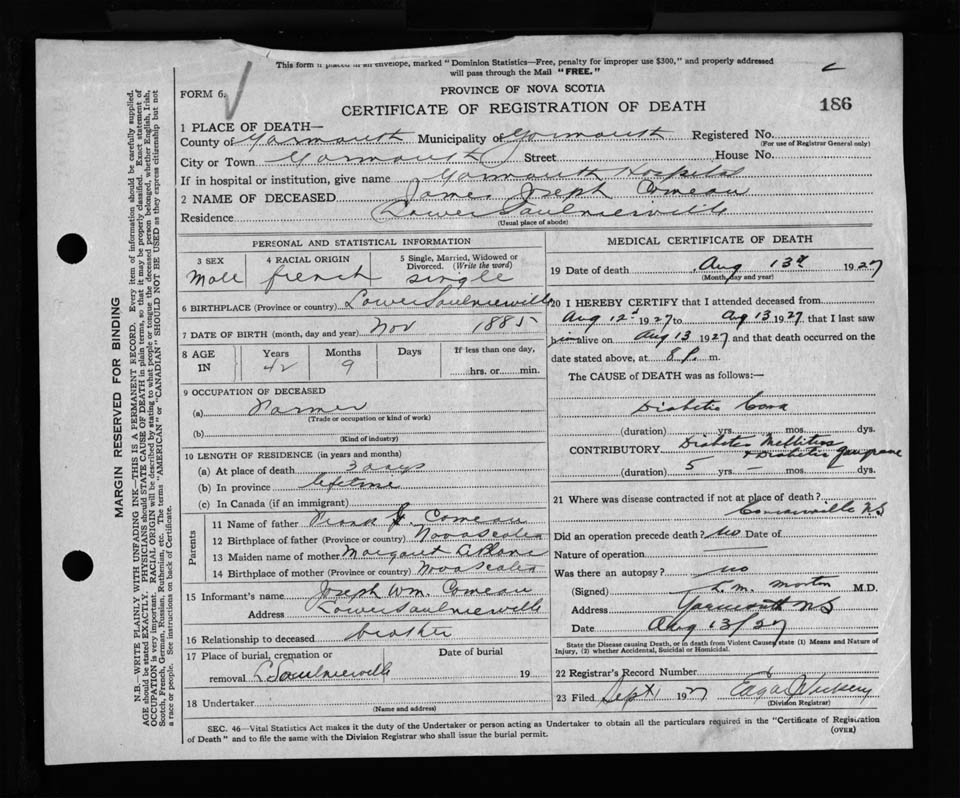 This form if placed in an envelope, marked "Dominion Statistics—Free, penalty for improper use $300," and properly addressed
will pass through the Mail "FREE."
FORM 6.
PROVINCE OF NOVA SCOTIA
CERTIFICATE OF REGISTRATION OF DEATH
186
1 PLACE OF DEATH—
County of Yarmouth Municipality of Yarmouth Registered No.
(For use of Registrar General only)
City or Town Yarmouth Street House No.
If in hospital or institution, give name Yarmouth Hospital
2 NAME OF DECEASED James Joseph Comeau
Residence Lower Saulnierville
(Usual place of abode)
PERSONAL AND STATISTICAL INFORMATION
3 SEX Male
4 RACIAL ORIGIN french
5 Single, Married, Widowed or Divorced. (Write the word) single
6 BIRTHPLACE (Province or country) Lower Saulnierville
7 DATE OF BIRTH (month, day and year) Nov 1885
8 AGE IN Years 42 Months 9 Days If less than one day, hrs. or min.
9 OCCUPATION OF DECEASED
(a) Farmer
(Trade or occupation or kind of work)
(b)
(Kind of industry)
10 LENGTH OF RESIDENCE (in years and months)
(a) At place of death 3 days
(b) In province lifetime
(c) In Canada (if an immigrant)
Parents
11 Name of father Comeau
12 Birthplace of father (Province or country) Nova Scotia
13 Maiden name of mother Margaret
14 Birthplace of mother (Province or country) Nova Scotia
15 Informant's name Joseph Wm. Comeau
Address Lower Saulnierville
16 Relationship to deceased brother
17 Place of burial, cremation or removal L Saulnierville Date of burial 19
18 Undertaker
(Name and address)
MEDICAL CERTIFICATE OF DEATH
19 Date of death Aug 13th 1927
(Month, day and year)
20 I HEREBY CERTIFY that I attended deceased from
Aug 12 1927 to Aug 13 1927, that I last saw
him alive on Aug 13 1927 and that death occurred on the
date stated above, at 8 P. m.
The CAUSE of DEATH was as follows:—
Diabetic Coma
(duration) yrs. mos. dys.
CONTRIBUTORY Diabetes Mellitus
+ Diabetic gangrene
(duration) 5 yrs. — mos. dys.
21 Where was disease contracted if not at place of death?
Comeauville N.S
Did an operation precede death? No Date of
Nature of operation
Was there an autopsy? no
(Signed) L. M. Morton M.D.
Address Yarmouth N S
Date Aug 13/27
State the Disease causing Death, or in death from Violent Causes, state (1) Means and Nature of
Injury, (2) whether Accidental, Suicidal or Homicidal.
22 Registrar's Record Number
23 Filed Sept 1927 Edgar
(Division Registrar)
SEC. 46—Vital Statistics Act makes it the duty of the Undertaker or person acting as Undertaker to obtain all the particulars required in the "Certificate of Registration
of Death" and to file the same with the Division Registrar who shall issue the burial permit.
(OVER)
MARGIN RESERVED FOR BINDING
N.B.—WRITE PLAINLY WITH UNFADING INK—THIS IS A PERMANENT RECORD. Every item of information should be carefully supplied.
AGE should be stated EXACTLY. PHYSICIANS should STATE CAUSE OF DEATH in plain terms, so that it may be properly classified. Exact statement of
OCCUPATION is very important. RACIAL ORIGIN will be described by stating to what people or tongue the deceased person belonged, whether English, Irish,
Scotch, French, German, Russian, Ruthenian, etc. The terms "AMERICAN" or "CANADIAN" SHOULD NOT BE USED as they express citizenship but not
a race or people. See instructions on back of Certificate.